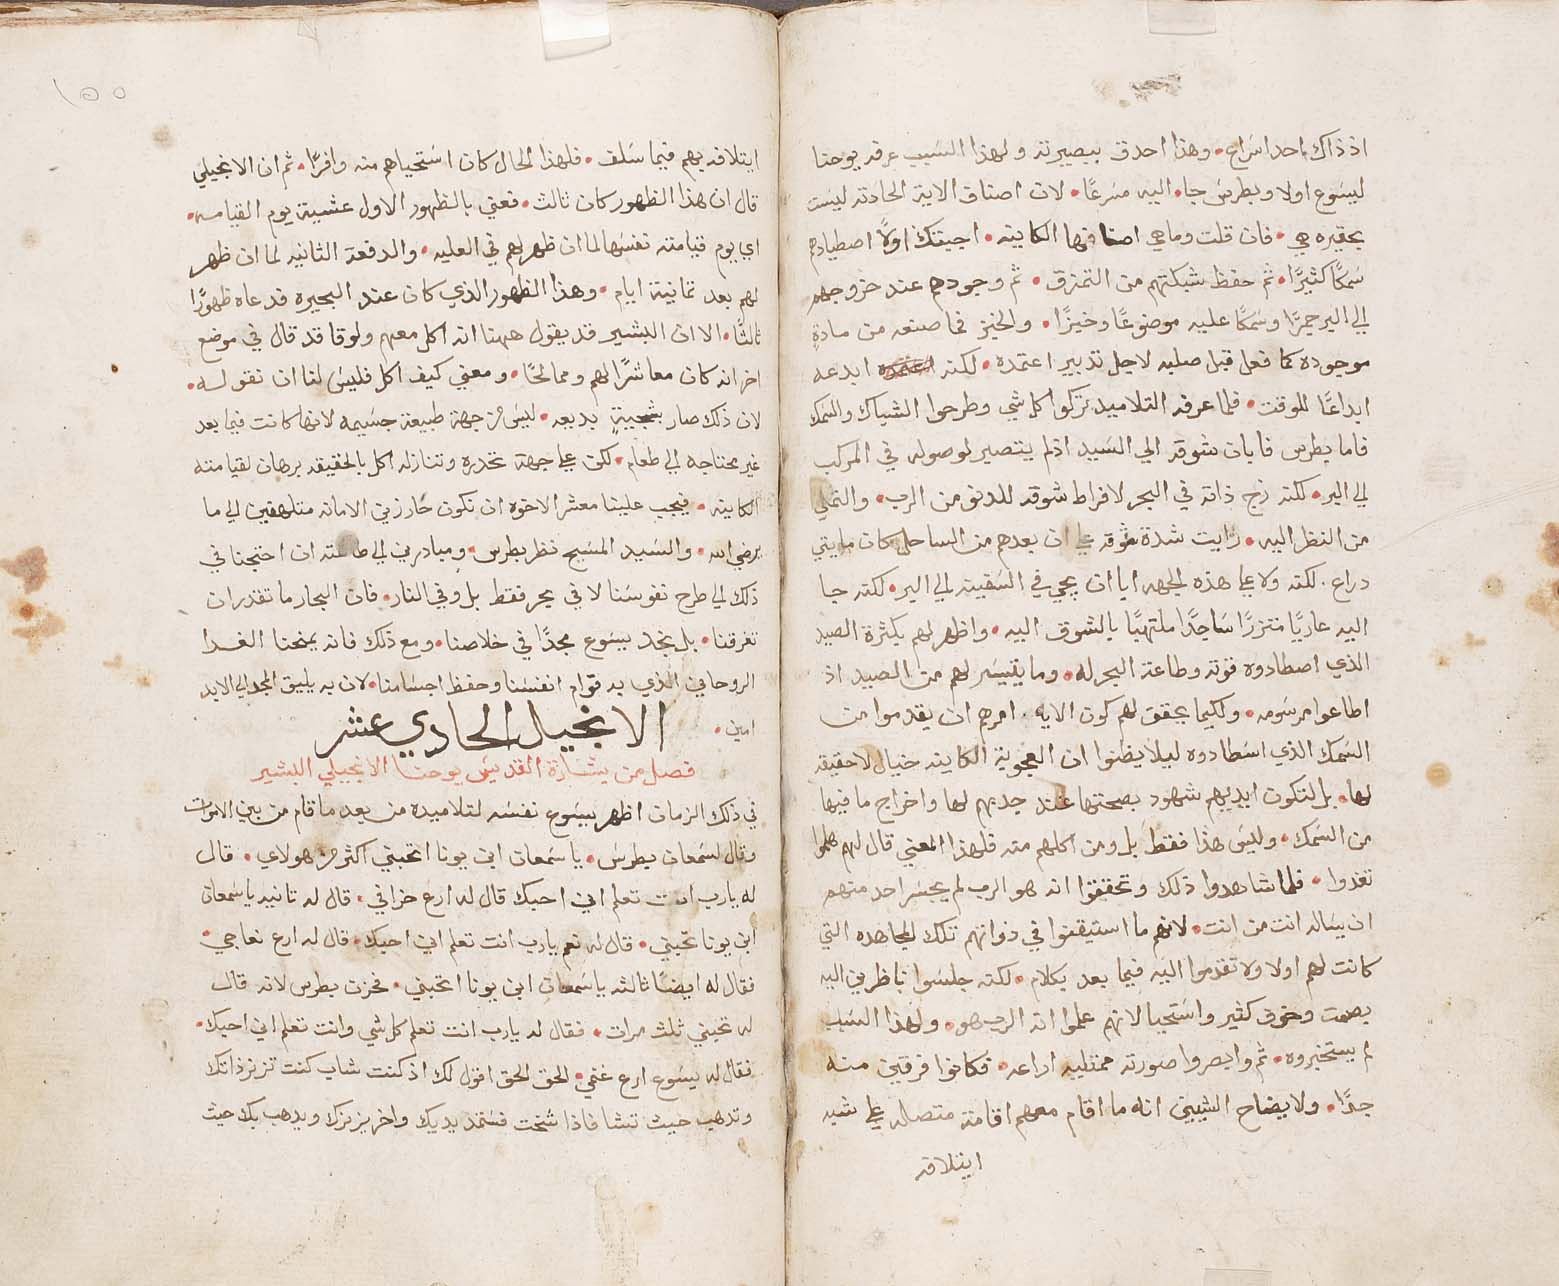 اذ ذاك احد اسراج • وهذا احدق ببصيرته ولهذا السبب عرفه يوحنا
ليسوع اولا وبطرس جا • اليه مسرعًا • لان اصناف الاية الحادثه ليست
بحقيره هي • فان قلت وما هي اصنافها الكاينه • اجيتك اولًا اصطيادهم
سمكًا كثيرًا • ثم حفظ شبكتهم من التمزق • ثم وجودهم عند خروجهم
الي البر جمرًا وسمكًا عليه موضوعًا وخبزًا • والخبز فما صنعه من مادةٍ
موجوده كما فعل قبل صلبه لاجل تدبير اعتمده • لكنه ابدعه
ابداعًا للوقت • فلما عرفه التلاميد تركوا كل شي وطرحوا الشباك والسمك
فاما بطرس فابان شوقه الي السيد اذ لم يتصبر لوصوله في المركب
الي البر • لكنه زج ذاته في البحر لافراط شوقه للدنو من الرب • والتملي
من النظر اليه • رايت شدة شوقه علي ان بعدهم من الساحل كان مايتي
دراع • لكنه ولا علي هذه الجهه ايا ان يجي في السفينه الي البر • لكنه جا
اليه عاريًا متزرًا ساجدًا ملتهبًا بالشوق اليه • واظهر لهم بكثرة الصيد
الذي اصطادوه قوته وطاعة البحر له • وما يتيسر لهم من الصيد اذ
اطاعوا مرسومه • ولكيما يحقق لهم كون الايه • امرهم ان يقدموا من
السمك الذي اسطادوه ليلا يظنوا ان العجوبة الكاينه خيال لا حقيقه
لها • بل لتكون ايديهم شهود بصحتها عند جدبهم لها واخراج ما فيها
من السمك • وليس هذا فقط بل ومن اكلهم منه فلهذا المعني قال لهم هلموا
تغدوا • فلما شاهدوا ذلك وتحققوا انه هو الرب لم يجسر احد منهم
ان يساله انت من انت • لانهم ما استيقنوا في ذواتهم تلك المجاهده التي
كانت لهم اولا ولا تقدموا اليه فيما بعد بكلام • لكنه جلسوا ناظرين اليه
بصمت وخوف كثير واستحيا لانهم علموا انه الرب هو • ولهذا السبب
لم يستخبروه • ثم وابصروا صورته ممتليه اراعه • فكانوا فرقين منه
جدًا • ولايضاح التبيين انه ما اقام معهم اقامة متصله علي شبه
ايتلافه
١٥٥
ايتلافه بهم فيما سلف • فلهذا الحال كان استحياهم منه وافرًا • ثم ان الانجيلي
قال ان هذا الظهور كان ثالث • فعني بالظهور الاول عشية يوم القيامه •
اي يوم قيامته نفسها لما ان ظهر لهم في العليه • والدفعة الثانيه لما ان ظهر
لهم بعد ثمانية ايام • وهذا الظهور الذي كان عند البحيره قد عاه ظهورًا
ثالثًا • الا ان البشير قد يقول ههنا انه اكل معهم ولوقا قد قال في موضع
اخر انه كان معاشرًا لهم وممالحًا • ومعني كيف اكل فليس لنا ان نقوله •
لان ذلك صار بسجيةٍ بديعه • ليس من جهة طبيعة جسيمه لانها كانت فيما بعد
غير محتاجه الي طعام • لكن علي جهة تحدره وتنازله اكل بالحقيقه برهان لقيامته
الكاينه • فيجب علينا معشر الاخوه ان نكون حارزين الامانه متلهفين الي ما
يرضي الله • والسيد المسيح نظر بطرس • ومبادرين الي طاعته ان احتجنا في
ذلك الي طرح نفوسنا لا في بحر فقط بل وفي النار • فان البحار ما تقدر ان
تغرقنا • بل نجد يسوع مجدًا في خلاصنا • ومع ذلك فانه يمنحنا الغدا
الروحاني الذي به قوام انفسنا وحفظ اجسامنا • لان به يليق المجد الي الابد
امين •
الانجيل الحادي عشر
فصل من بشارة القديس يوحنا الانجيلي البشير
في ذلك الزمان اظهر يسوع نفسه لتلاميده من بعد ما قام من بين الاموات
وقال لسمعان بطرس • يا سمعان ابن يونا اتحبني اكثر من هولاي • قال
له يارب انت تعلم اني احبك قال له ارع خرافي • قال له تانيه يا سمعان
ابن يونا تحبني • قال له نعم يارب انت تعلم اني احبك • قال له ارع نعاجي •
فقال له ايضًا ثالثه يا سمعان ابن يونا اتحبني • فحزن بطرس لانه قال
له تحبني ثلث مرات • فقال له يارب انت تعلم كل شي وانت تعلم اني احبك •
فقال له يسوع ارع غنمي • الحق الحق اقول لك اذ كنت شاب كنت تزنر ذاتك
وتدهب حيث تشا فاذا شخت فستمد يديك واخر يزنرك ويدهب بك حيث